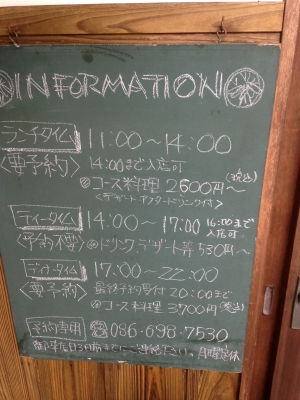 INFORMATION
ランチタイム 11:00〜14:00
〈要予約〉 14:00まで入店可
◎コース料理 2600円〜 (税込)
〈デザート アフタードリンク付〉
ティータイム 14:00〜17:00 16:00まで入店可
〈予約不要〉 ◎ドリンク、デザート等 530円〜
ディナータイム 17:00〜22:00
〈要予約〉 最終予約受付 20:00まで
◎コース料理 3700円 (税込)
予約専用 ☎086-698-7530
3日前までにご連絡下さい。月曜定休